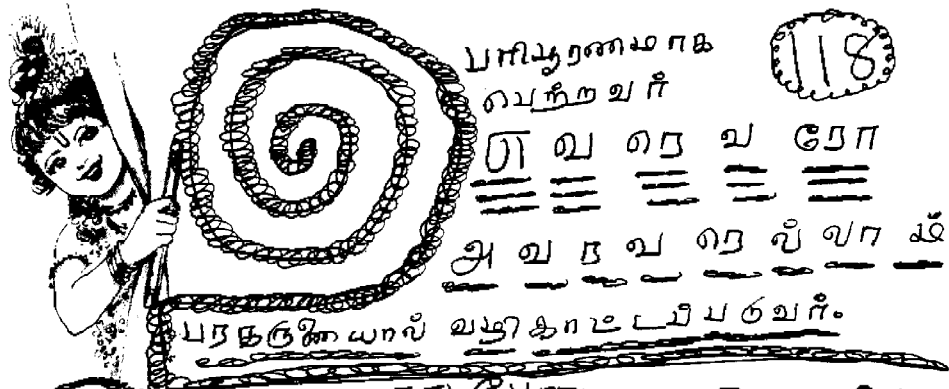 பரிபூரணமாக
118
பெற்றவர்
எவரெவரோ
அவரவரெல்லாம்
பரகருணையால் வழிகாட்டப்படுவர்.